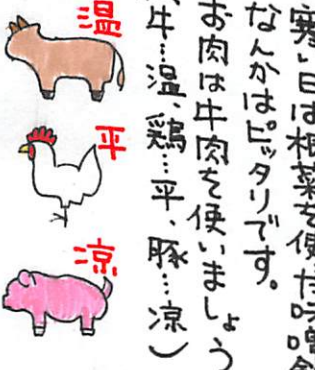 寒い日は根菜を使った味噌
なんかはピッタリです。
お肉は牛肉を使いましょう
牛…温、鶏…平、豚…涼）
温
平
涼